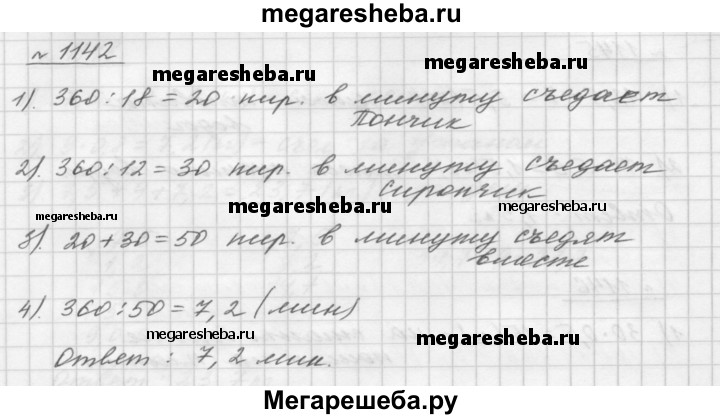 megaresheba.ru
№ 1142
megaresheba.ru
1). 360:18=20 пир. в минуту съедает
Пончик
2). 360:12=30 пир. в минуту съедает
Сиропчик
megaresheba.ru
megaresheba.ru
megaresheba.ru
3). 20+30=50 пир. в минуту съедят
вместе
4). 360:50=7,2 (мин)
megaresheba.ru
megaresheba.ru
Ответ: 7,2 мин.
Мегарешеба.ру